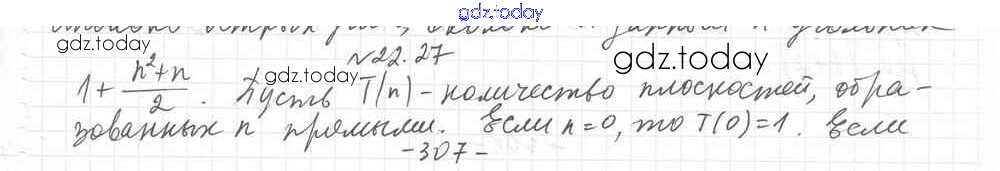 gdz.today
gdz.today
№22.27
gdz.today
1 + (n²+n)/2 . Пусть T(n) – количество плоскостей, обра-
gdz.today
gdz.today
зованных n прямыми. Если n=0, то T(0)=1. Если
-307-